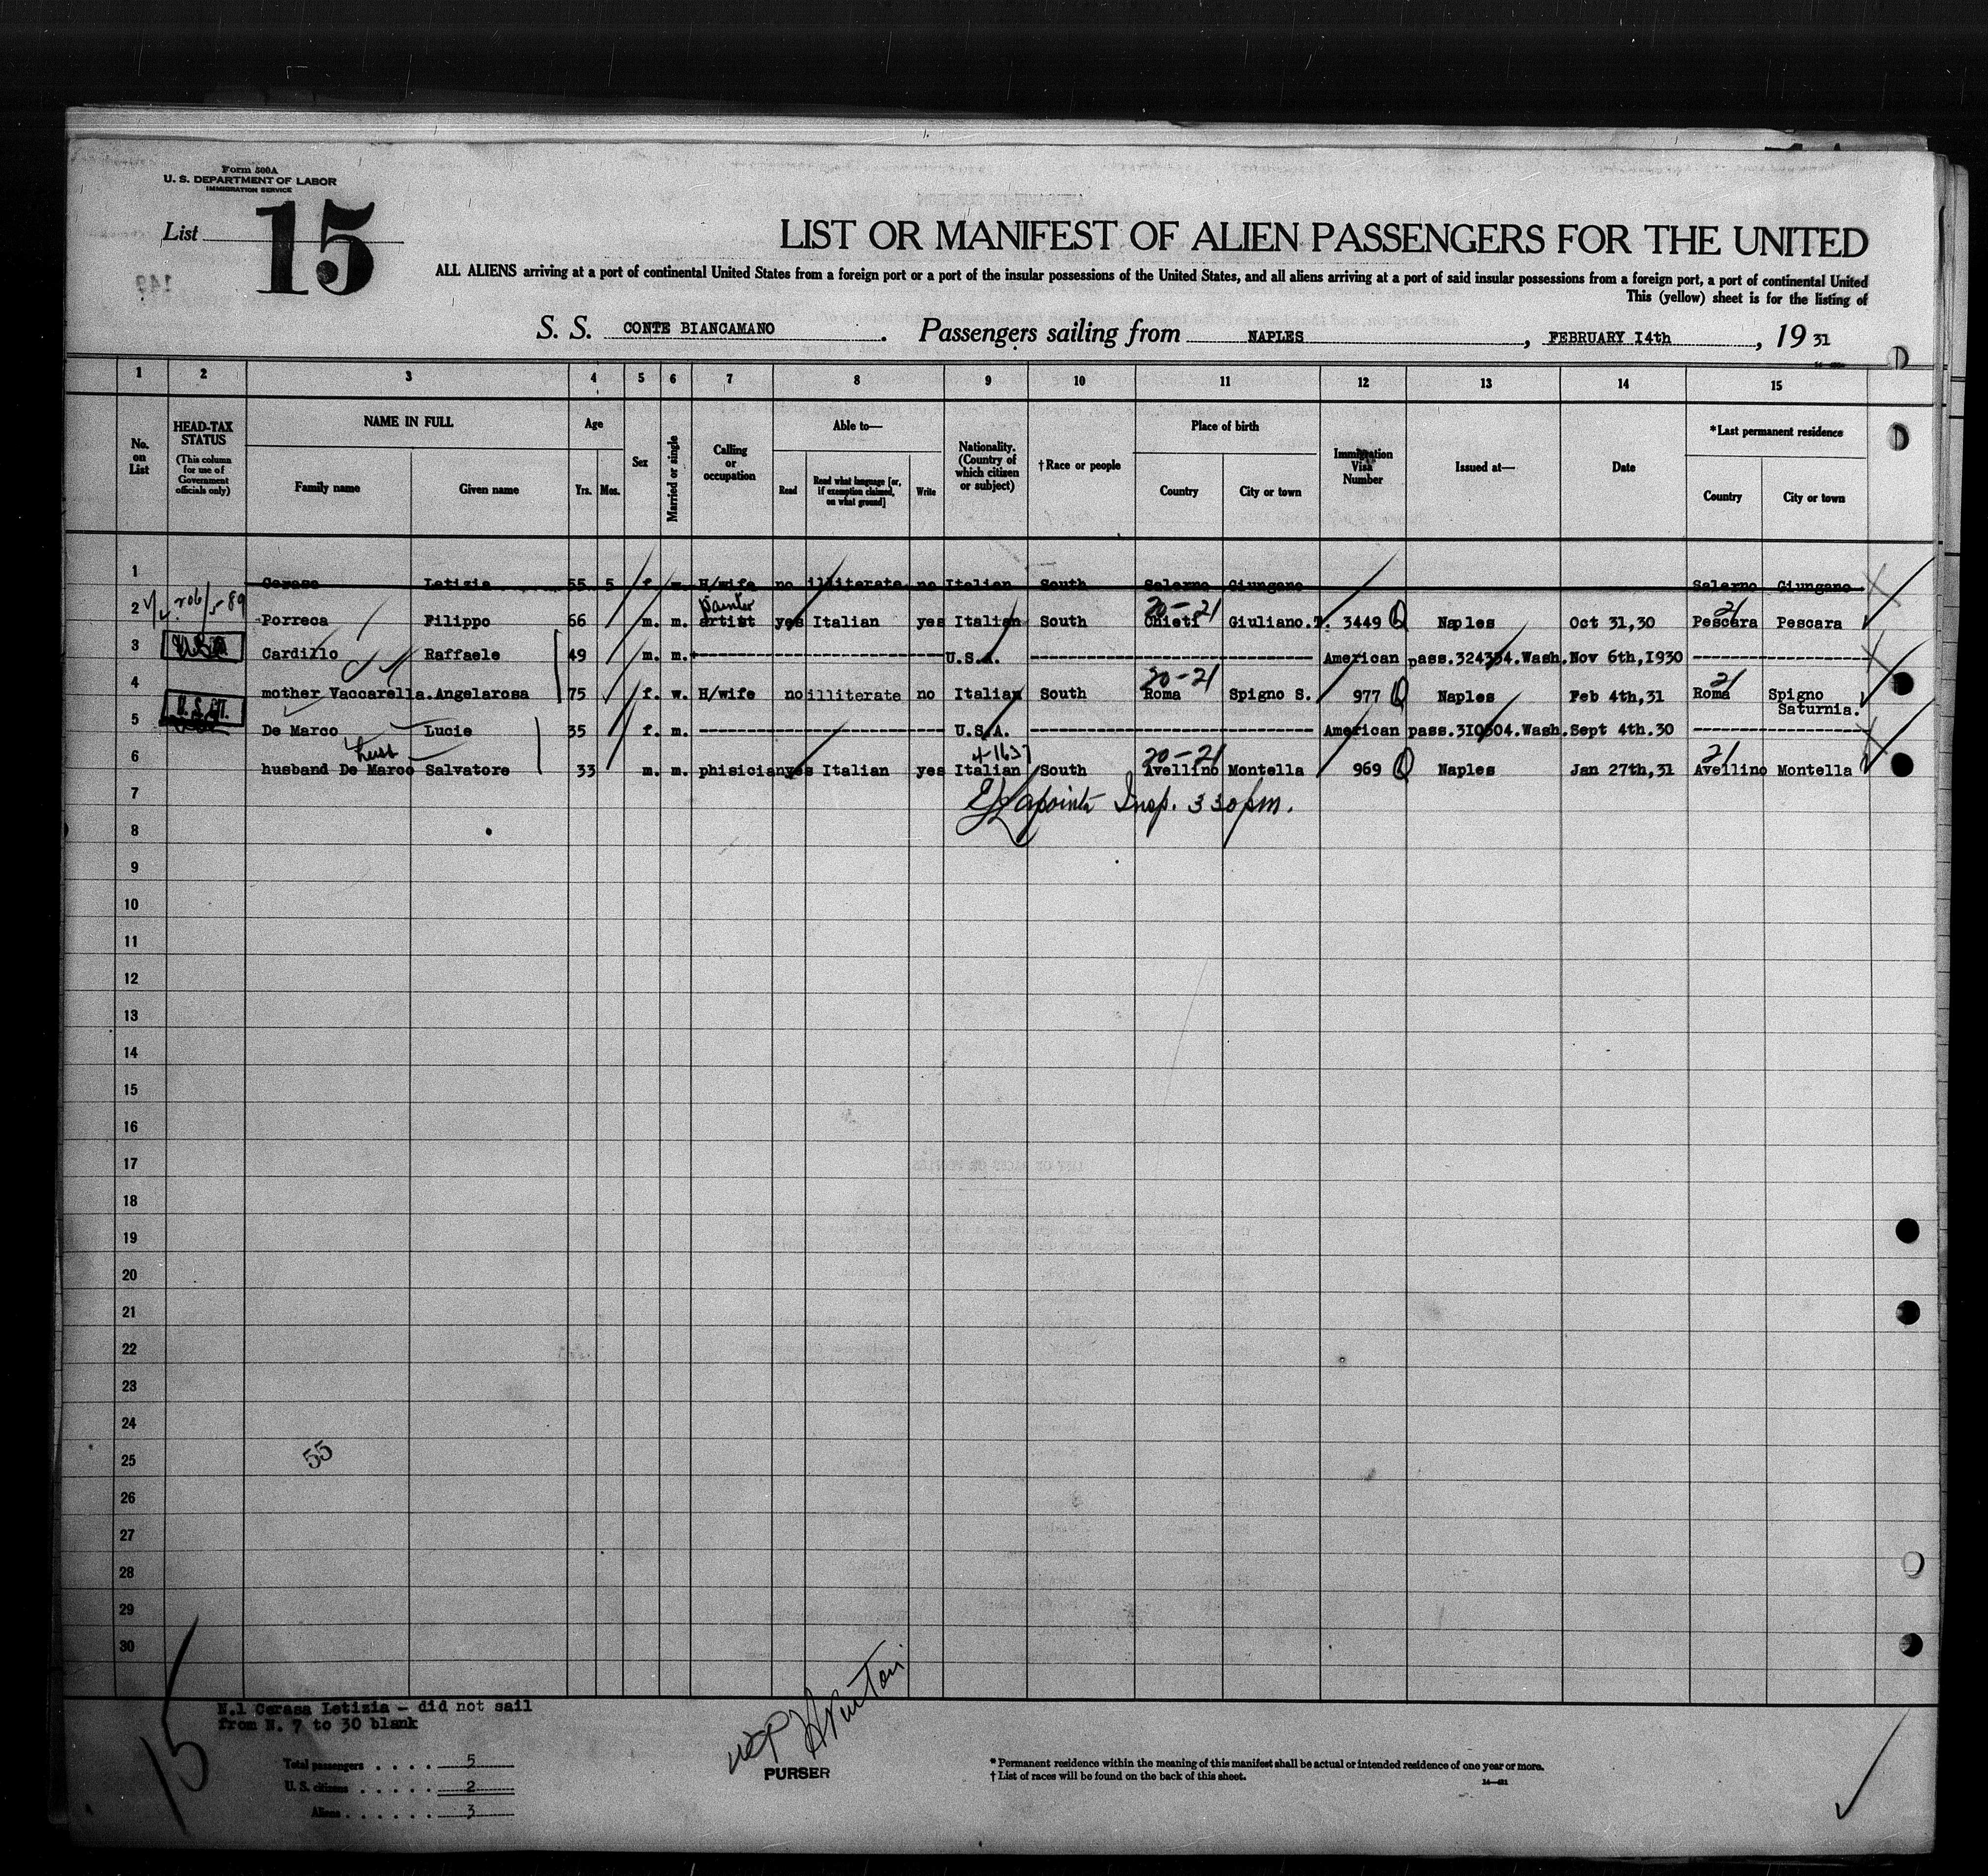 Form 500A
U. S. DEPARTMENT OF LABOR
IMMIGRATION SERVICE
List 15
149
LIST OR MANIFEST OF ALIEN PASSENGERS FOR THE UNITED
ALL ALIENS arriving at a port of continental United States from a foreign port or a port of the insular possessions of the United States, and all aliens arriving at a port of said insular possessions from a foreign port, a port of continental United
This (yellow) sheet is for the listing of
S. S. CONTE BIANCAMANO. Passengers sailing from NAPLES, FEBRUARY I4th, 19 31
1 2 3 4 5 6 7 8 9 10 11 12 13 14 15
No. on List
HEAD-TAX STATUS (This column for use of Government officials only)
NAME IN FULL Family name Given name
Age Yrs. Mos.
Sex
Married or single
Calling or occupation
Able to— Read Read what language [or, if exemption claimed, on what ground] Write
Nationality. (Country of which citizen or subject)
†Race or people
Place of birth Country City or town
Immigration Visa Number
Issued at—
Date
*Last permanent residence Country City or town
1 Cerasa Letizia 55 5 f. m. H/wife no illiterate no Italian South Salerno Giungano Salerno Giungano
206/5-89 painter 20-21 21
2 Porreca Filippo 66 m. m. artist yes Italian yes Italian South Chieti Giuliano.T. 3449 Naples Oct 31,30 Pescara Pescara
3 Cardillo Raffaele 49 m. m. U.S.A. American pass.324354.Wash.Nov 6th,I930
20-21 21
4 mother Vaccarella.Angelarosa 75 f. w. H/wife no illiterate no Italian South Roma Spigno S. 977 Naples Feb 4th,31 Roma Spigno Saturnia.
5 De Marco Lucie 35 f. m. U.S.A. American pass.3I0504.Wash.Sept 4th.30
20-21 21
6 husband De Marco Salvatore 33 m. m. phisician yes Italian yes Italian South Avellino Montella 969 Naples Jan 27th,31 Avellino Montella
7 Insp. 3 30 pm.
8
9
10
11
12
13
14
15
16
17
18
19
20
21
22
23
24
25
55
26
27
28
29
30
N.1 Cerasa Letizia - did not sail
from N. 7 to 30 blank
15
Total passengers . . . . 5
U. S. citizens . . . . . 2
Aliens . . . . . . 3
PURSER
* Permanent residence within the meaning of this manifest shall be actual or intended residence of one year or more.
† List of races will be found on the back of this sheet.